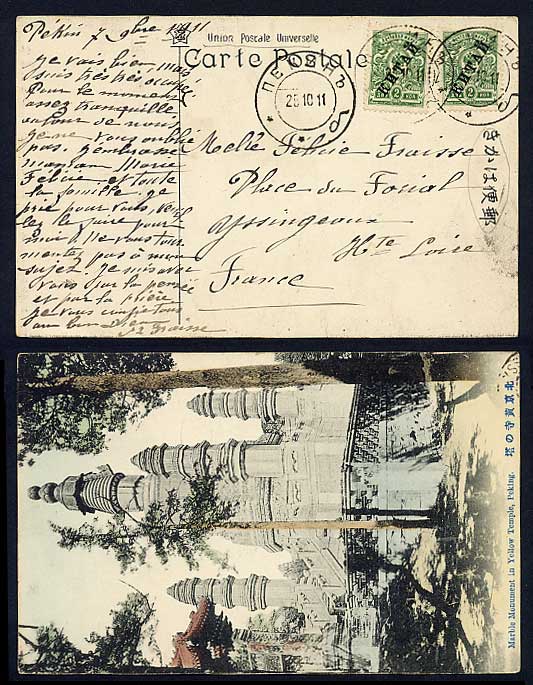 Pékin 7 9bre 1911
Je vais bien, mais
suis très très occupé
Pour le moment
assez tranquille
autour de nous.
Je ne vous oublie
pas.
maman Marie
Félicie et toute
la famille. Je
prie pour vous,
les le faire pour
moi. Ne vous tour
mentez pas à mon
sujet. Je
vous par la pensée
et par la prière
Je vous
Fraisse
Union Postale Universelle
Carte Postale
ПЕКИНЪ
25 10 11
КИТАЙ
2 КОП
КИТАЙ
2 КОП
きかは便郵
Melle Félicie Fraisse
Place du Foiral
Yssingeaux
Hte Loire
France
北京黄寺の塔
Marble Monument in Yellow Temple, Peking.